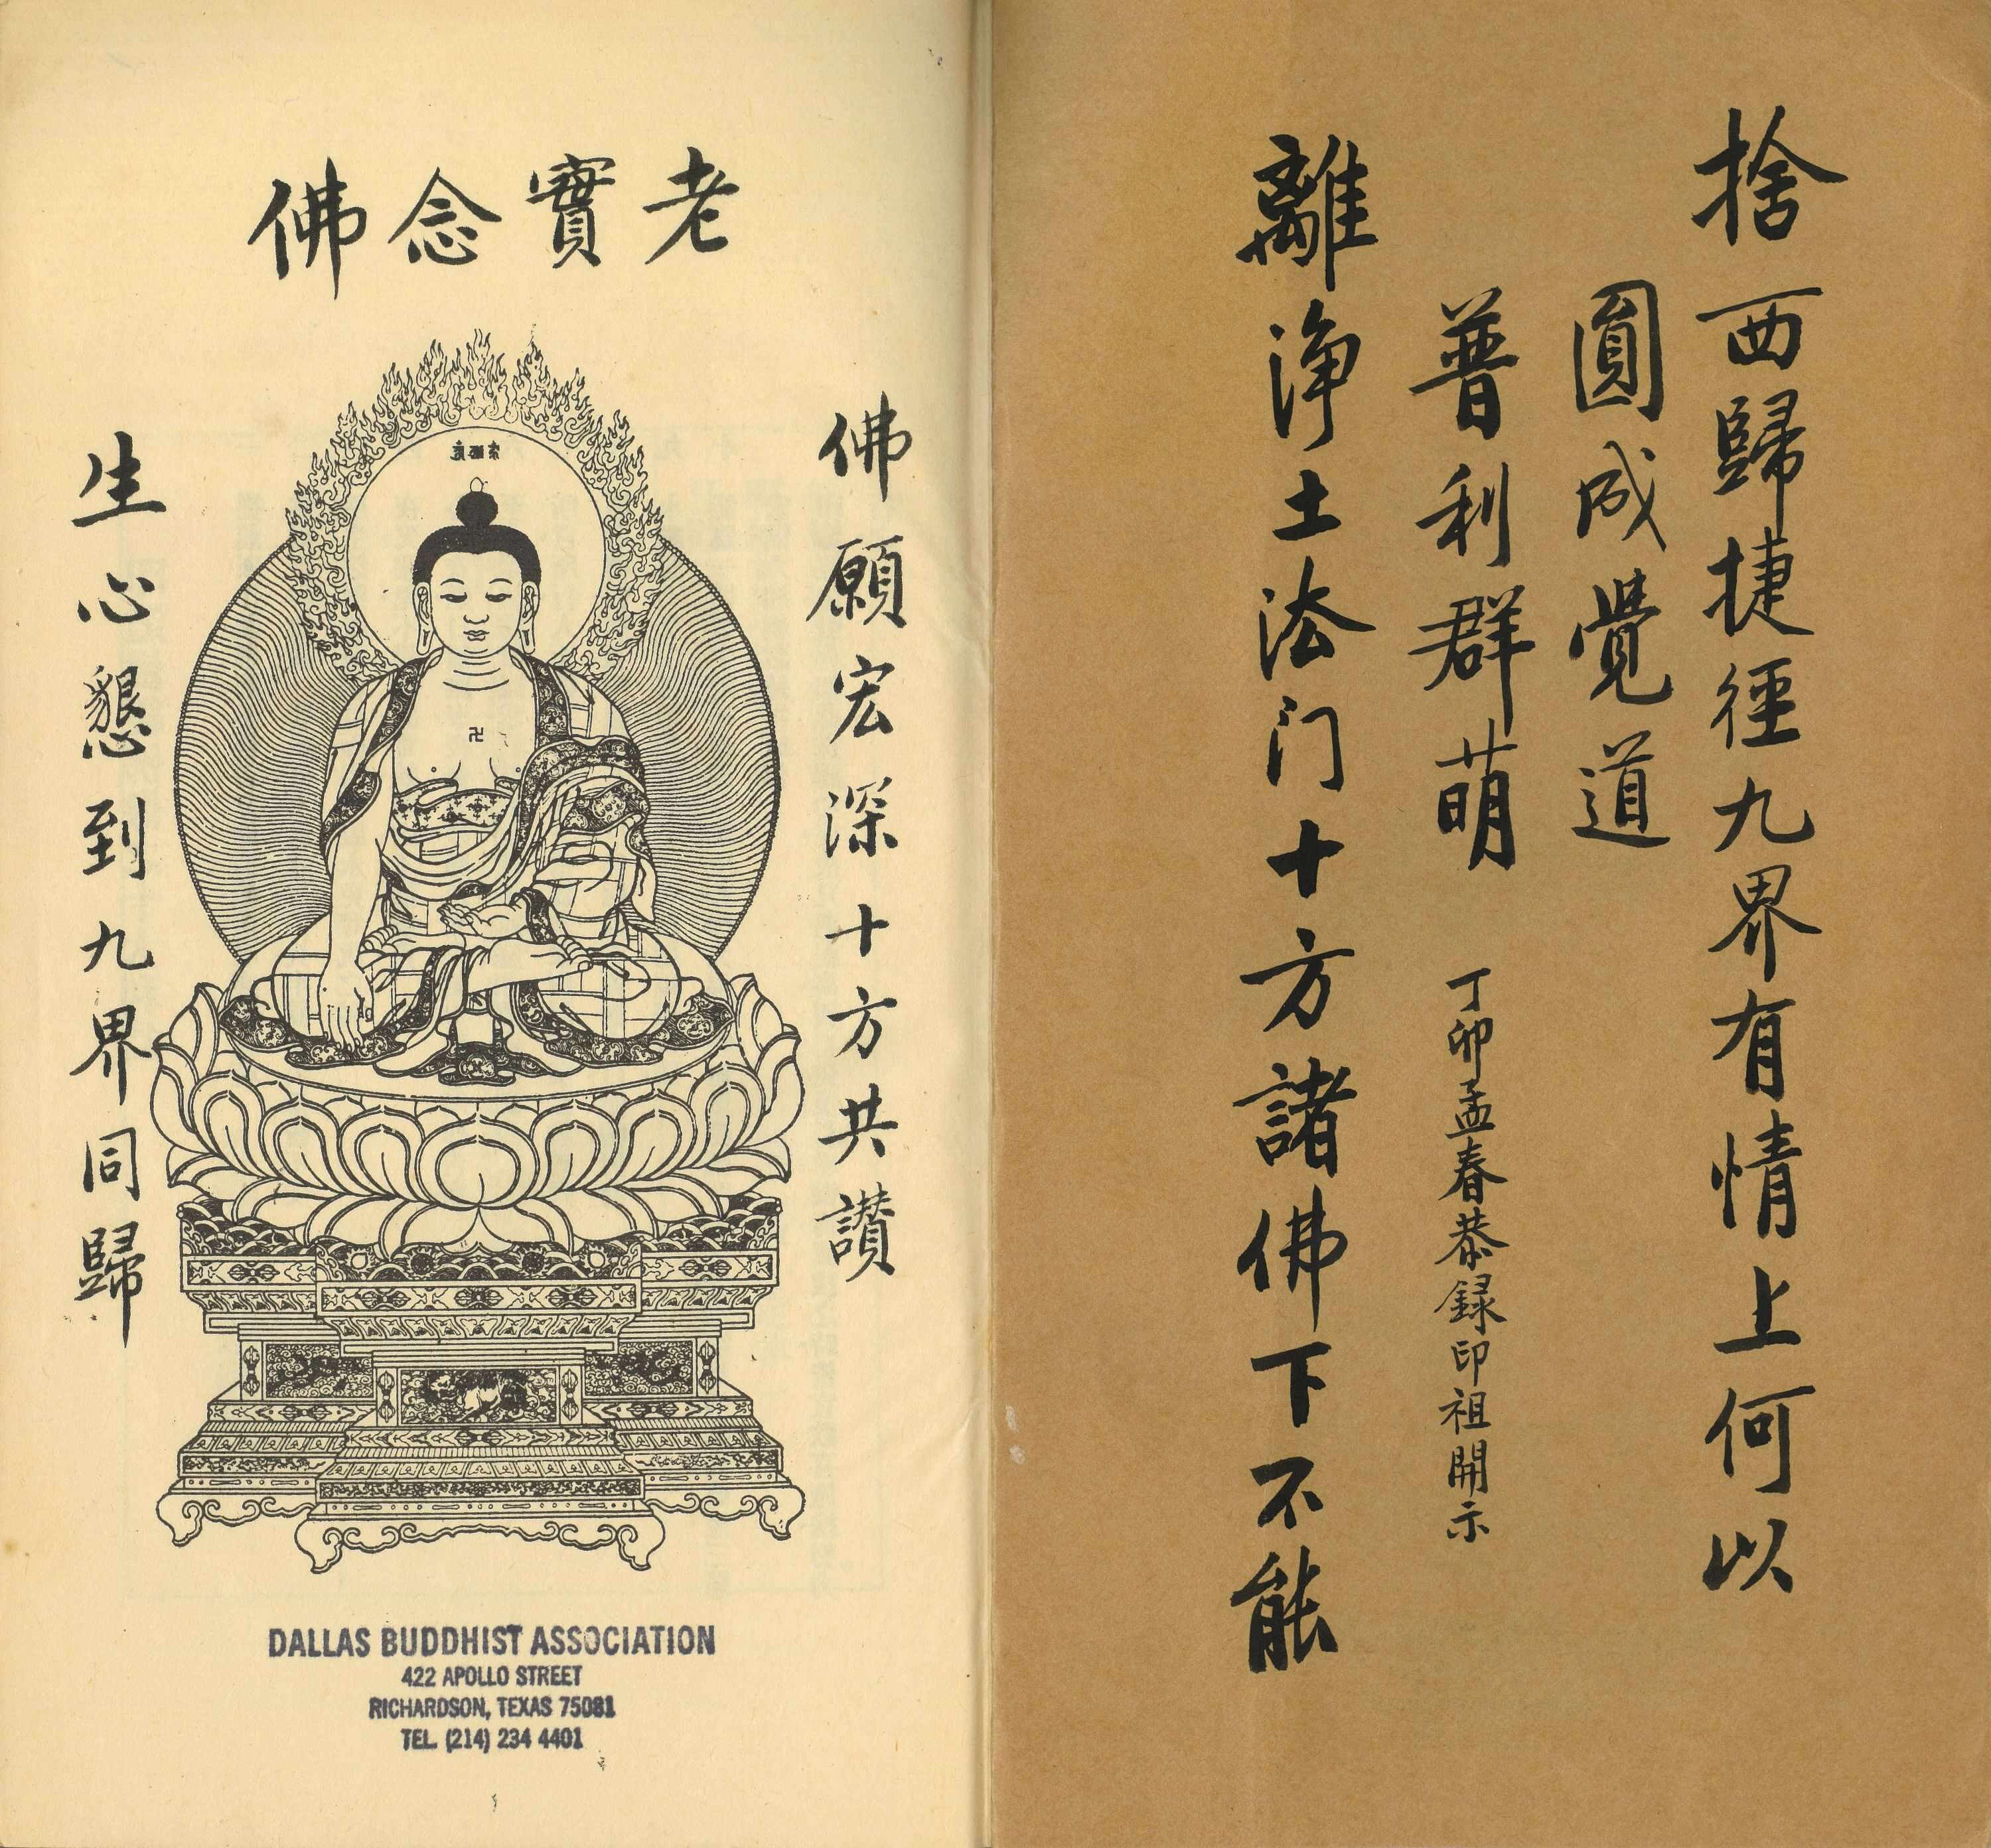 捨西歸捷徑九界有情上何以
圓成覺道
離淨土法门十方諸佛下不能
普利群萌
丁卯孟春恭録印祖開示
老實念佛
佛願宏深十方共讃
生心懇到九界同歸
卍
DALLAS BUDDHIST ASSOCIATION
422 APOLLO STREET
RICHARDSON, TEXAS 75081
TEL. (214) 234 4401